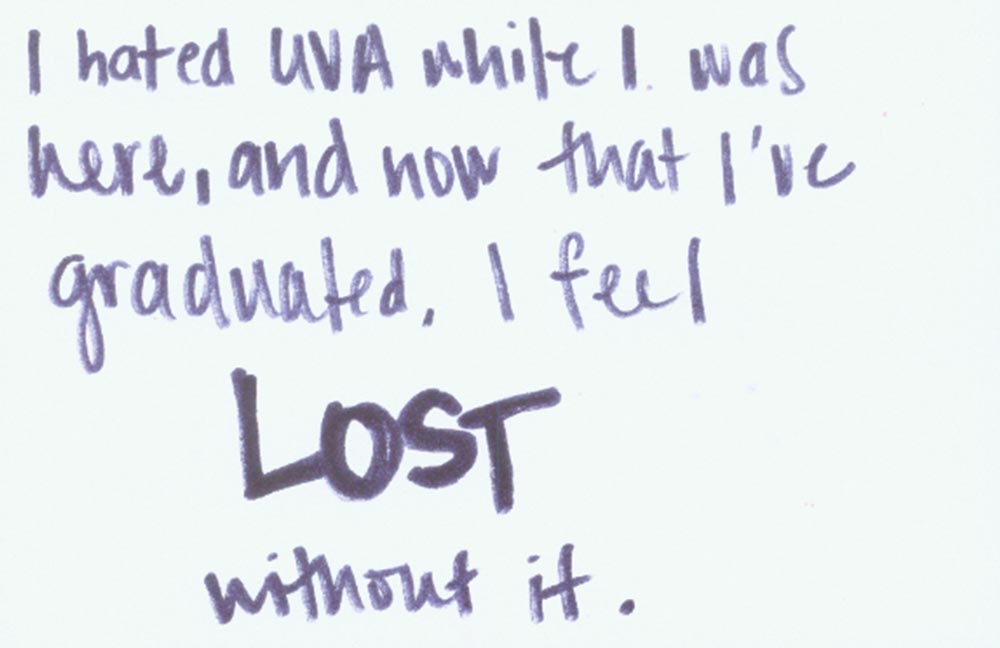 I hated UVA while I was
here, and now that I've
graduated, I feel
LOST
without it.